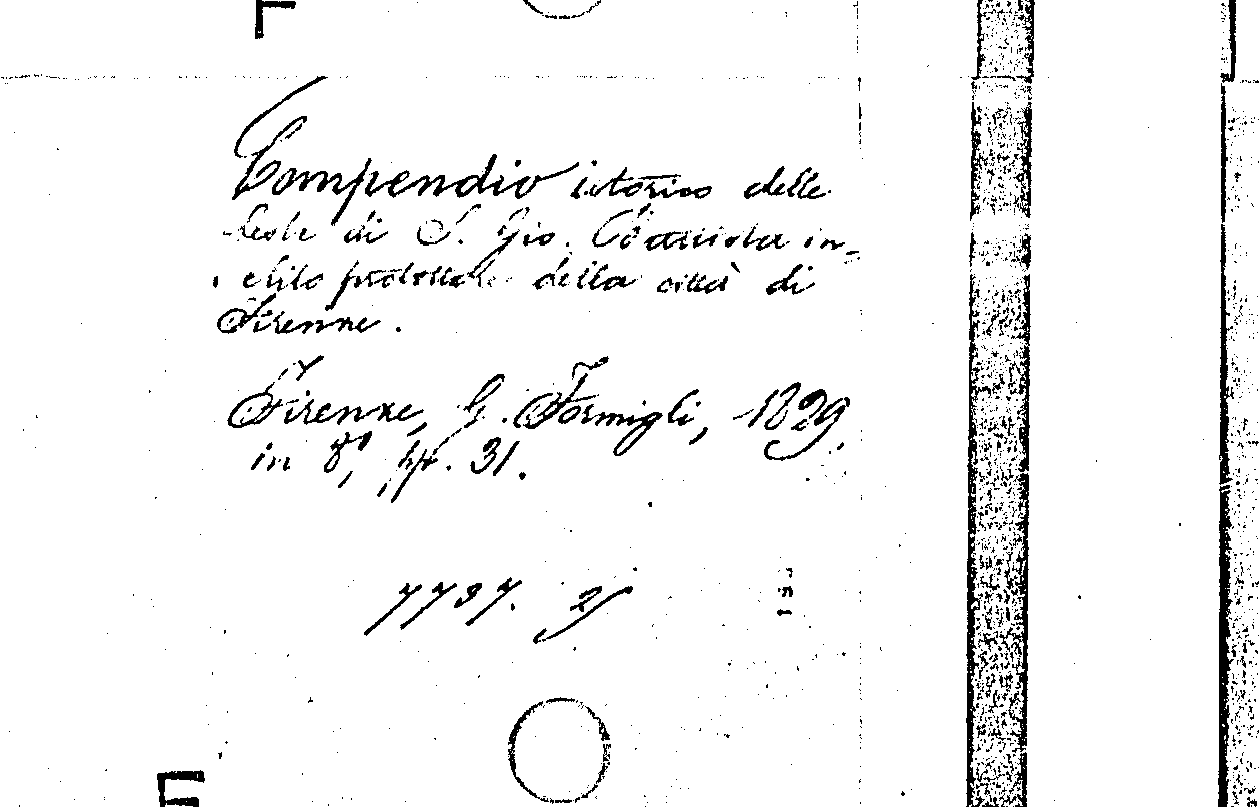 Compendio istorico delle
feste di S. Gio. Battista in-
clito protettore della città di
Firenze.
Firenze, G. Formigli, 1829.
in 8°, pp. 31.
7737. 25